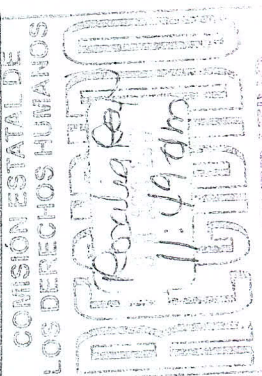 COMISIÓN ESTATAL DE
LOS DERECHOS HUMANOS
RECIBIDO
Rosalia
11:49